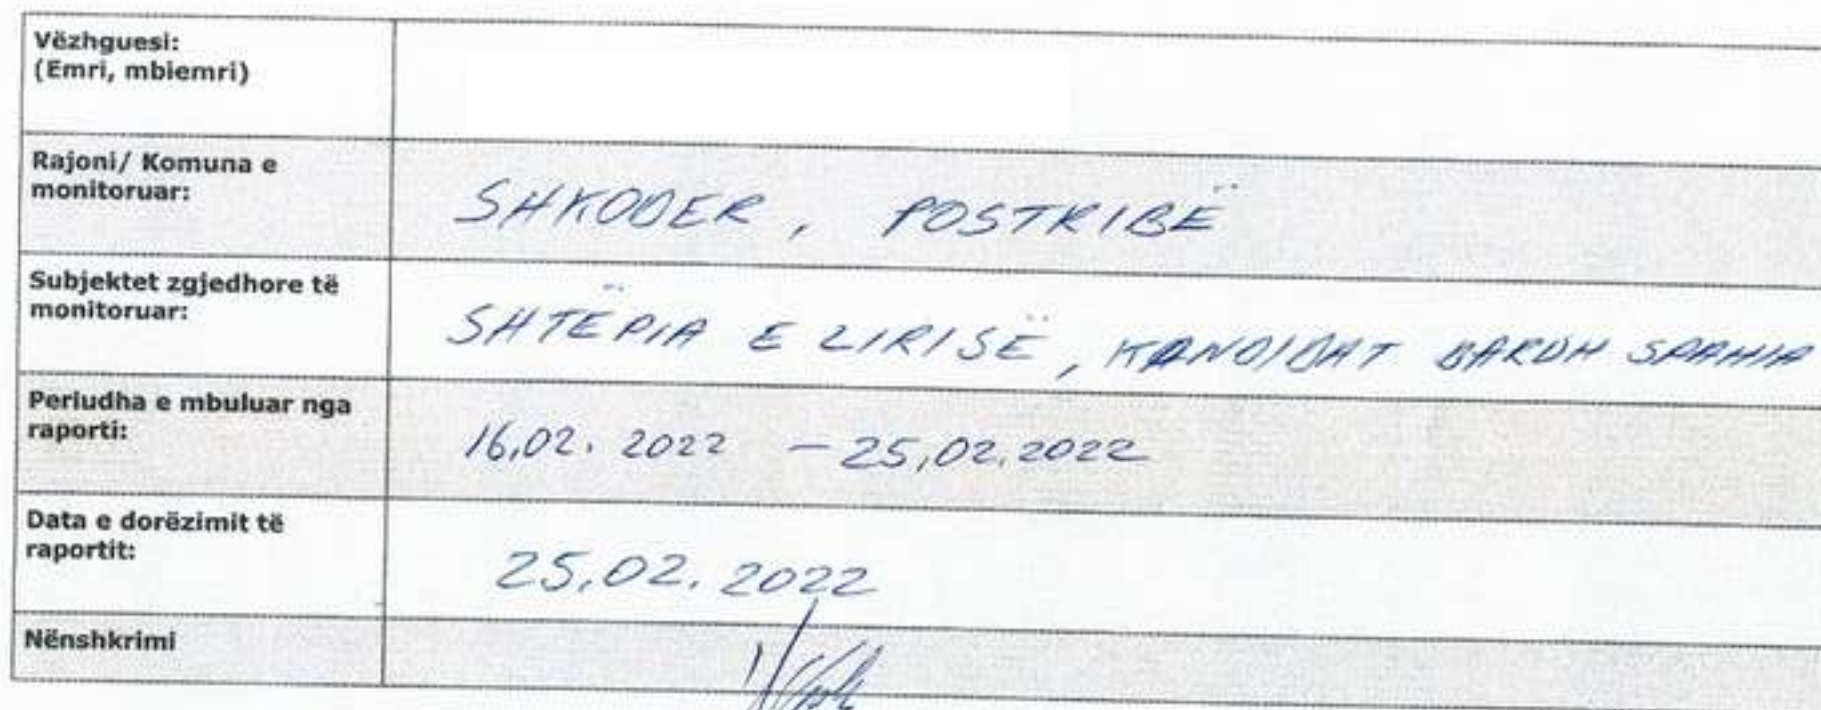 Vëzhguesi:
(Emri, mbiemri)
Rajoni/ Komuna e
monitoruar:
SHKODER, POSTRIBË
Subjektet zgjedhore të
monitoruar:
SHTËPIA E LIRISË, KANDIDAT BARDH SPAHIA
Periudha e mbuluar nga
raporti:
16,02. 2022 - 25,02.2022
Data e dorëzimit të
raportit:
25,02. 2022
Nënshkrimi